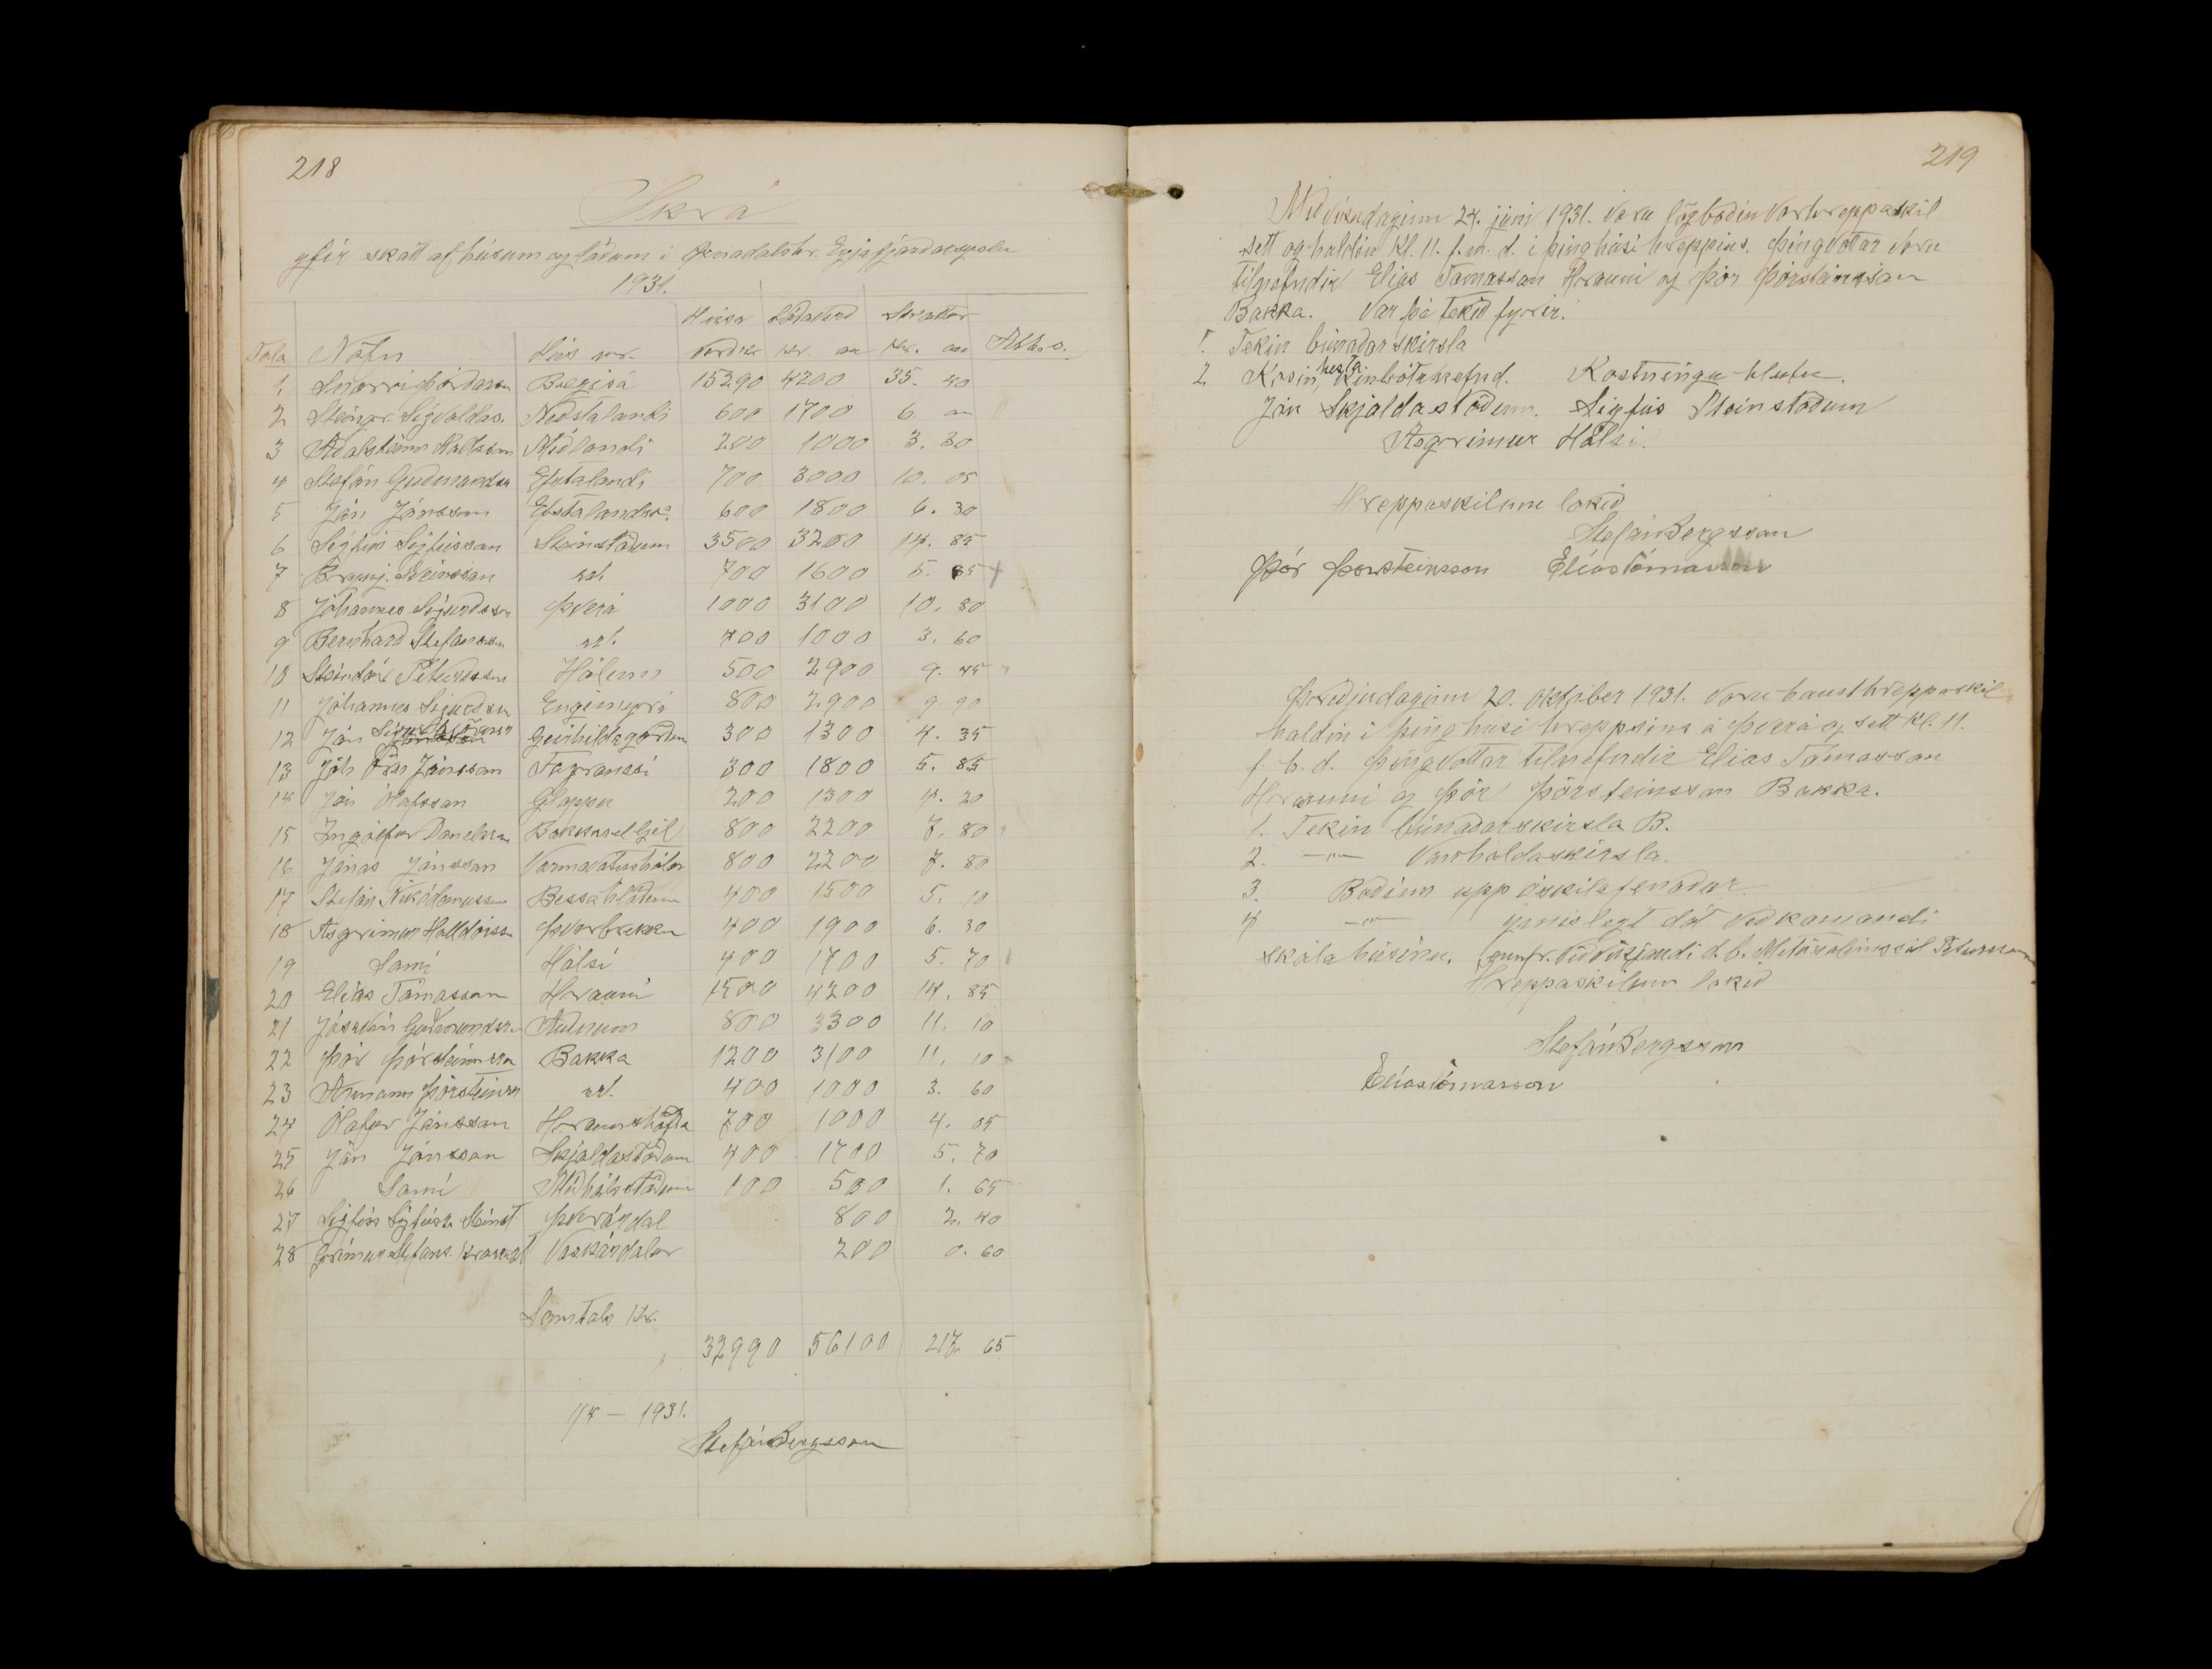 218
Skrá
yfir skatt af húsum og lóðum í Öxnadalshr. Eyjafjarðarsyslu
1931.
Húsa Lóðaverd Skattar
Tala Nöfn Hús nr. Verd kr kr. au kr. au Aths.
1 Snorri Þórdarson Bægisá 15290 4200 35. 40
2 Steingr. Sigvaldas. Nedstalandi 600 1700 6. "
3 Adalsteinn Hallsson Midlandi 200 1000 3. 30
4 Stefán Gudmundss Efstalandi 700 3000 10. 05
5 Jón Jónsson Efstalandsk. 600 1800 6. 30
6 Sigfús Sigfússon Steinstödum 3500 3200 14. 85
7 Brynj. Sveinsson s.st. 700 1600 5. 85
8 Jóhannes Sigurdsson Þverá 1000 3100 10. 80
9 Bernhard Stefánsson s.st. 400 1000 3. 60
10 Steindór Pétursson Hólum 500 2900 9. 45
11 Jóhannes Sigurdss Engimýri 800 2900 9. 90
12 Jón Geirhildagördum 300 1300 4. 35
13 Jóh Örn Jónsson Fagranesi 300 1800 5. 85
14 Jón Ólafsson Gloppu 200 1300 4. 20
15 Ingólfur Danelsson Bakkasel Gil 800 2200 7. 80
16 Jónas Jónsson Varmavatnshólar 800 2200 7. 80
17 Stefán Nikódemusson Bessahlödum 400 1500 5. 10
18 Asgrimur Halldórss Þverbrekku 400 1900 6. 30
19 Sami Hálsi 400 1700 5. 70
20 Elías Tómasson Hrauni 1500 4200 14. 85
21 Jósavin Gudmundss Audnum 800 3300 11. 10
22 Þór Þórsteinsson Bakka 1200 3100 11. 10
23 Armann Þórsteinsson s.st. 400 1000 3. 60
24 Ólafur Jónsson Hraunshöfda 700 1000 4. 05
25 Jón Jónsson Skjaldastödum 400 1700 5. 70
26 Sami Midhálsstödum 100 500 1. 65
27 Sigfús Sigfúss. Steinst Þverárdal 800 2. 40
28 Grímur Stefáns. Vaskárdalur 200 0. 60
Samtals kr.
32990 56100 217. 65
1/4 – 1931.
Stefán Bergsson
219
Midvikudaginn 24. júní 1931. Voru lögbodin vorhreppaskil
sett og haldin kl. 11. f.m. d. i þinghúsi hreppins. Þingvottar voru
tilnefndir Elias Tómasson Hrauni og Þór Þórsteinsson
Bakka. Var þá tekid fyrir.
1. Tekin búnadarskirsla
2 Kosin hesta Kinbótanefnd. Kostningu hlutu.
Jón Skjaldastödum. Sigfús Steinstödum
Asgrimur Hálsi.
Hreppaskilum lokid
Stefán Bergsson
Þór Þorsteinsson Elías Tómasson
Þridjudaginn 20. október 1931. Voru hausthreppaskil
haldin i þinghúsi hreppsins á Þverá og sett kl. 11.
f. h. d. Þingvottar tilnefndir Elias Tómasson
Hrauni og Þór Þórsteinsson Bakka.
1. Tekin búnadarskirsla B.
2. –"– Vanhaldaskirsla.
3. Bodinn upp óskilafenadar
4 –"– ymislegt dót vidkomandi
skólahúsinu.
Hreppaskilum lokid
Stefán Bergsson
Elías Tómasson